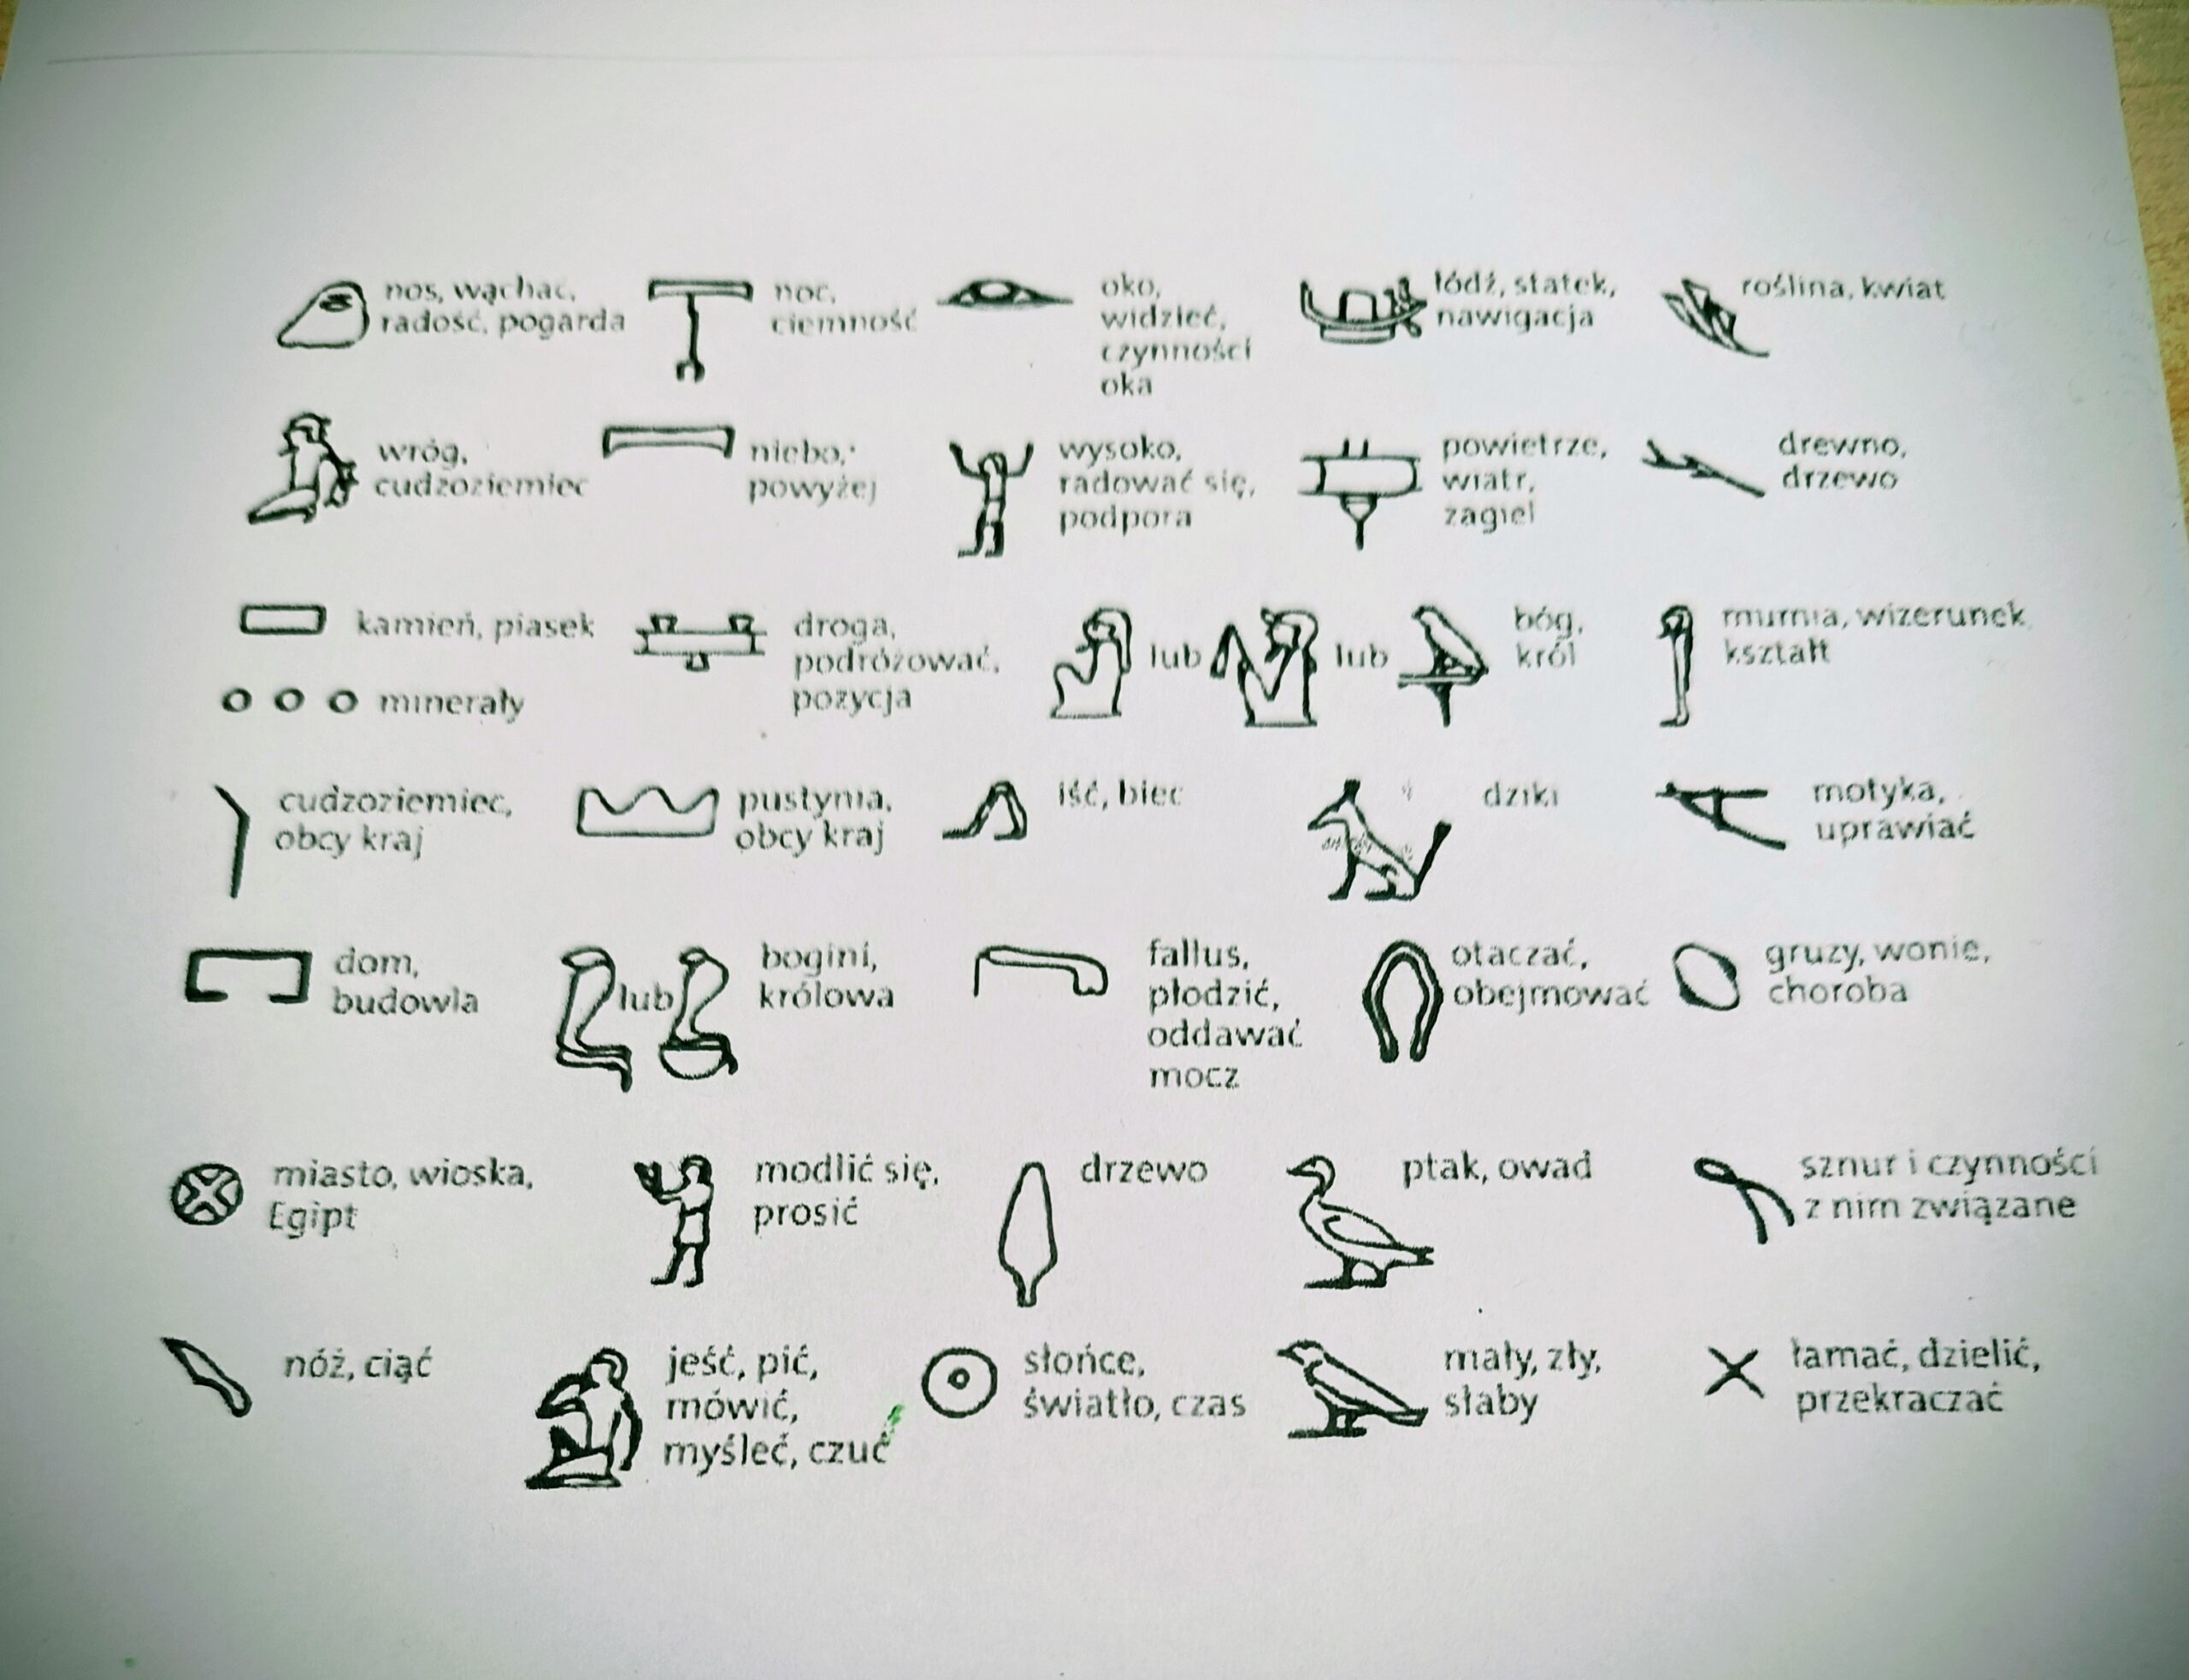 nos, wąchać,
radość, pogarda
noc,
ciemność
oko,
widzieć,
czynności
oka
łódź, statek,
nawigacja
roślina, kwiat
wróg,
cudzoziemiec
niebo,
powyżej
wysoko,
radować się,
podpora
powietrze,
wiatr,
żagiel
drewno,
drzewo
kamień, piasek
minerały
droga,
podróżować,
pozycja
lub
lub
bóg,
król
mumia, wizerunek,
kształt
cudzoziemiec,
obcy kraj
pustynia,
obcy kraj
iść, biec
dziki
motyka,
uprawiać
dom,
budowla
lub
bogini,
królowa
fallus,
płodzić,
oddawać
mocz
otaczać,
obejmować
gruzy, wonie,
choroba
miasto, wioska,
Egipt
modlić się,
prosić
drzewo
ptak, owad
sznur i czynności
z nim związane
nóż, ciąć
jeść, pić,
mówić,
myśleć, czuć
słońce,
światło, czas
mały, zły,
słaby
łamać, dzielić,
przekraczać